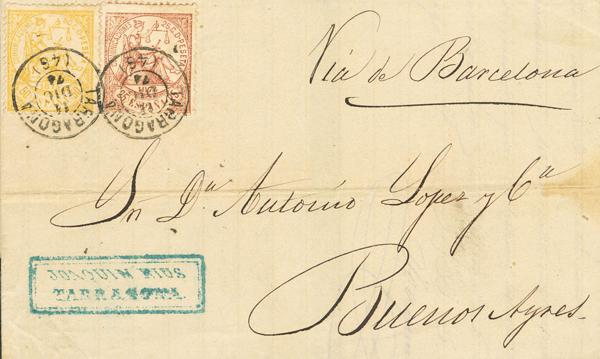 Via de Barcelona
TARRAGONA
DIC
74
(48)
TARRAGONA
DIC
74
(48)
Sn Dn Antonio Lopez y Cª
JOAQUIN RIUS
TARRAGONA
Buenos Ayres.